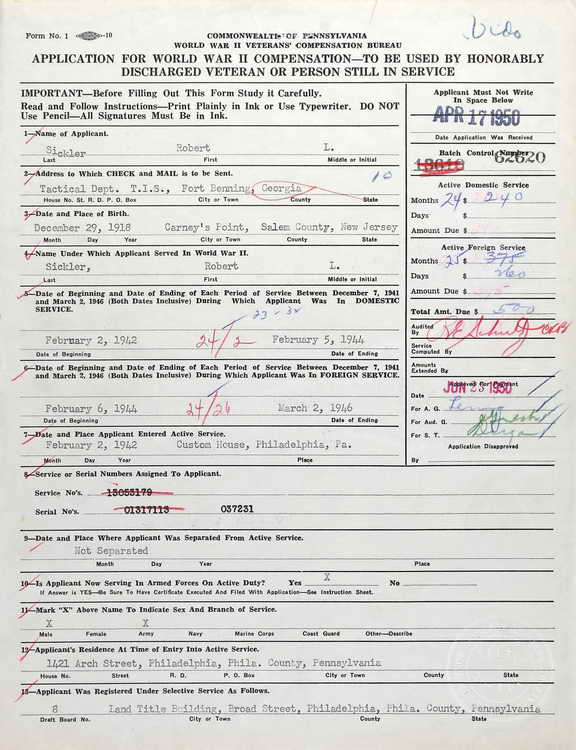 Form No. 1 10
COMMONWEALTH OF PENNSYLVANIA
WORLD WAR II VETERANS' COMPENSATION BUREAU
APPLICATION FOR WORLD WAR II COMPENSATION—TO BE USED BY HONORABLY
DISCHARGED VETERAN OR PERSON STILL IN SERVICE
IMPORTANT—Before Filling Out This Form Study it Carefully.
Read and Follow Instructions—Print Plainly in Ink or Use Typewriter. DO NOT
Use Pencil—All Signatures Must Be in Ink.
Applicant Must Not Write
In Space Below
APR 17 1950
Date Application Was Received
Batch Control Number
13610 62620
1—Name of Applicant.
Sickler Robert L.
Last First Middle or Initial
2—Address to Which CHECK and MAIL is to be Sent.
10
Tactical Dept. T.I.S., Fort Benning, Georgia
House No. St. R. D. P. O. Box City or Town County State
3—Date and Place of Birth.
December 29, 1918 Carney's Point, Salem County, New Jersey
Month Day Year City or Town County State
4—Name Under Which Applicant Served In World War II.
Sickler, Robert L.
Last First Middle or Initial
5—Date of Beginning and Date of Ending of Each Period of Service Between December 7, 1941
and March 2, 1946 (Both Dates Inclusive) During Which Applicant Was In DOMESTIC
SERVICE.
February 2, 1942 24/2 February 5, 1944
Date of Beginning Date of Ending
6—Date of Beginning and Date of Ending of Each Period of Service Between December 7, 1941
and March 2, 1946 (Both Dates Inclusive) During Which Applicant Was In FOREIGN SERVICE.
February 6, 1944 24/26 March 2, 1946
Date of Beginning Date of Ending
7—Date and Place Applicant Entered Active Service.
February 2, 1942 Custom House, Philadelphia, Pa.
Month Day Year Place
Active Domestic Service
Months 24 $ 240
Days $
Amount Due $
Active Foreign Service
Months 25 $ 375
Days $
Amount Due $
Total Amt. Due $ 500
Audited
By
Service
Computed By
Amounts
Extended By
Approved For Payment
Date JUN 23 1950
For A. G.
For Aud. G.
For S. T.
Application Disapproved
By
8—Service or Serial Numbers Assigned To Applicant.
Service No's. 13053179
Serial No's. 01317113 037231
9—Date and Place Where Applicant Was Separated From Active Service.
Not Separated
Month Day Year Place
10—Is Applicant Now Serving In Armed Forces On Active Duty? Yes X No
If Answer is YES—Be Sure To Have Certificate Executed And Filed With Application—See Instruction Sheet.
11—Mark "X" Above Name To Indicate Sex And Branch of Service.
X X
Male Female Army Navy Marine Corps Coast Guard Other—Describe
12—Applicant's Residence At Time of Entry Into Active Service.
1421 Arch Street, Philadelphia, Phila. County, Pennsylvania
House No. Street R. D. P. O. Box City or Town County State
13—Applicant Was Registered Under Selective Service As Follows.
8 Land Title Building, Broad Street, Philadelphia, Phila. County, Pennsylvania
Draft Board No. City or Town County State